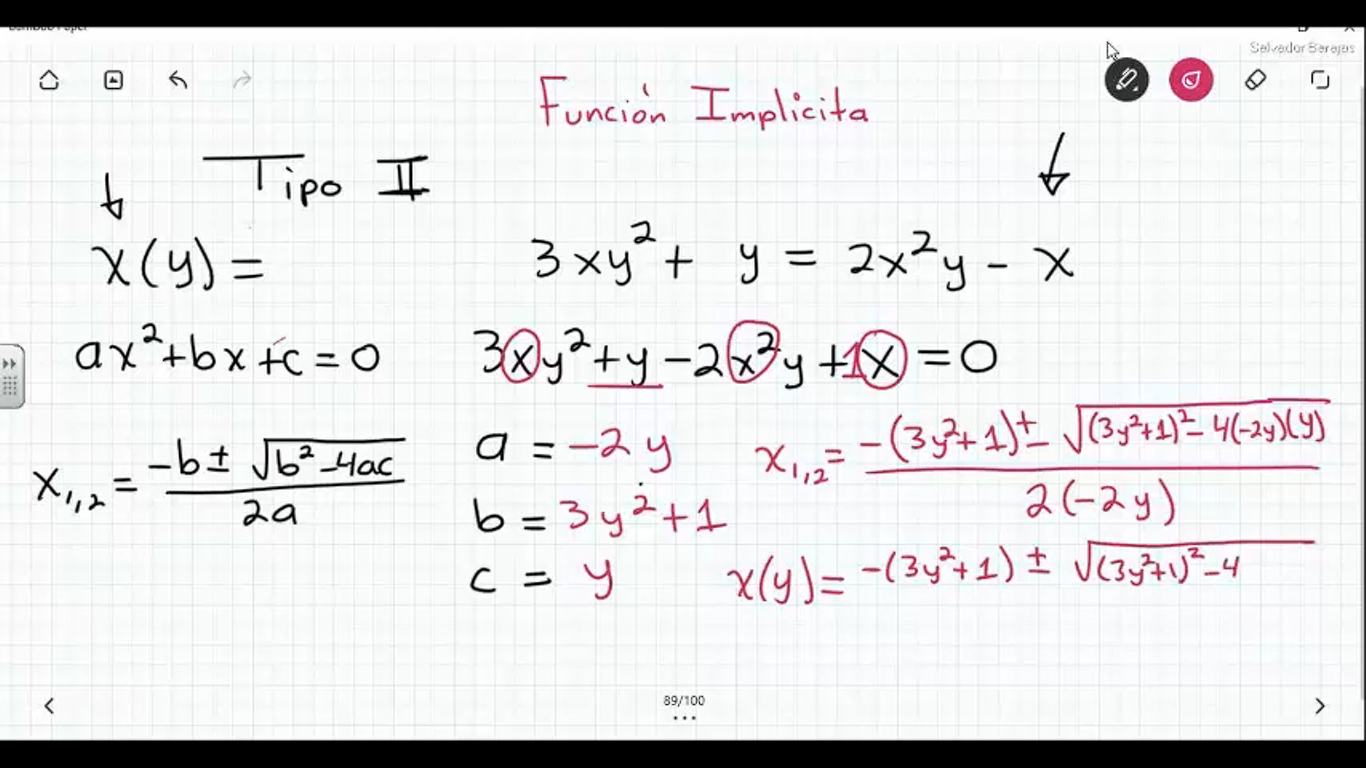 Salvador Barajas
Función Implicita
Tipo II
x(y) =
3xy² + y = 2x²y - x
ax²+bx+c = 0
3xy² + y - 2x²y + 1x = 0
x₁,₂ = (-b ± √(b² - 4ac)) / 2a
a = -2y
b = 3y² + 1
c = y
x₁,₂ = (-(3y²+1) ± √((3y²+1)² - 4(-2y)(y))) / 2(-2y)
x(y) = -(3y²+1) ± √((3y²+1)² - 4
89/100